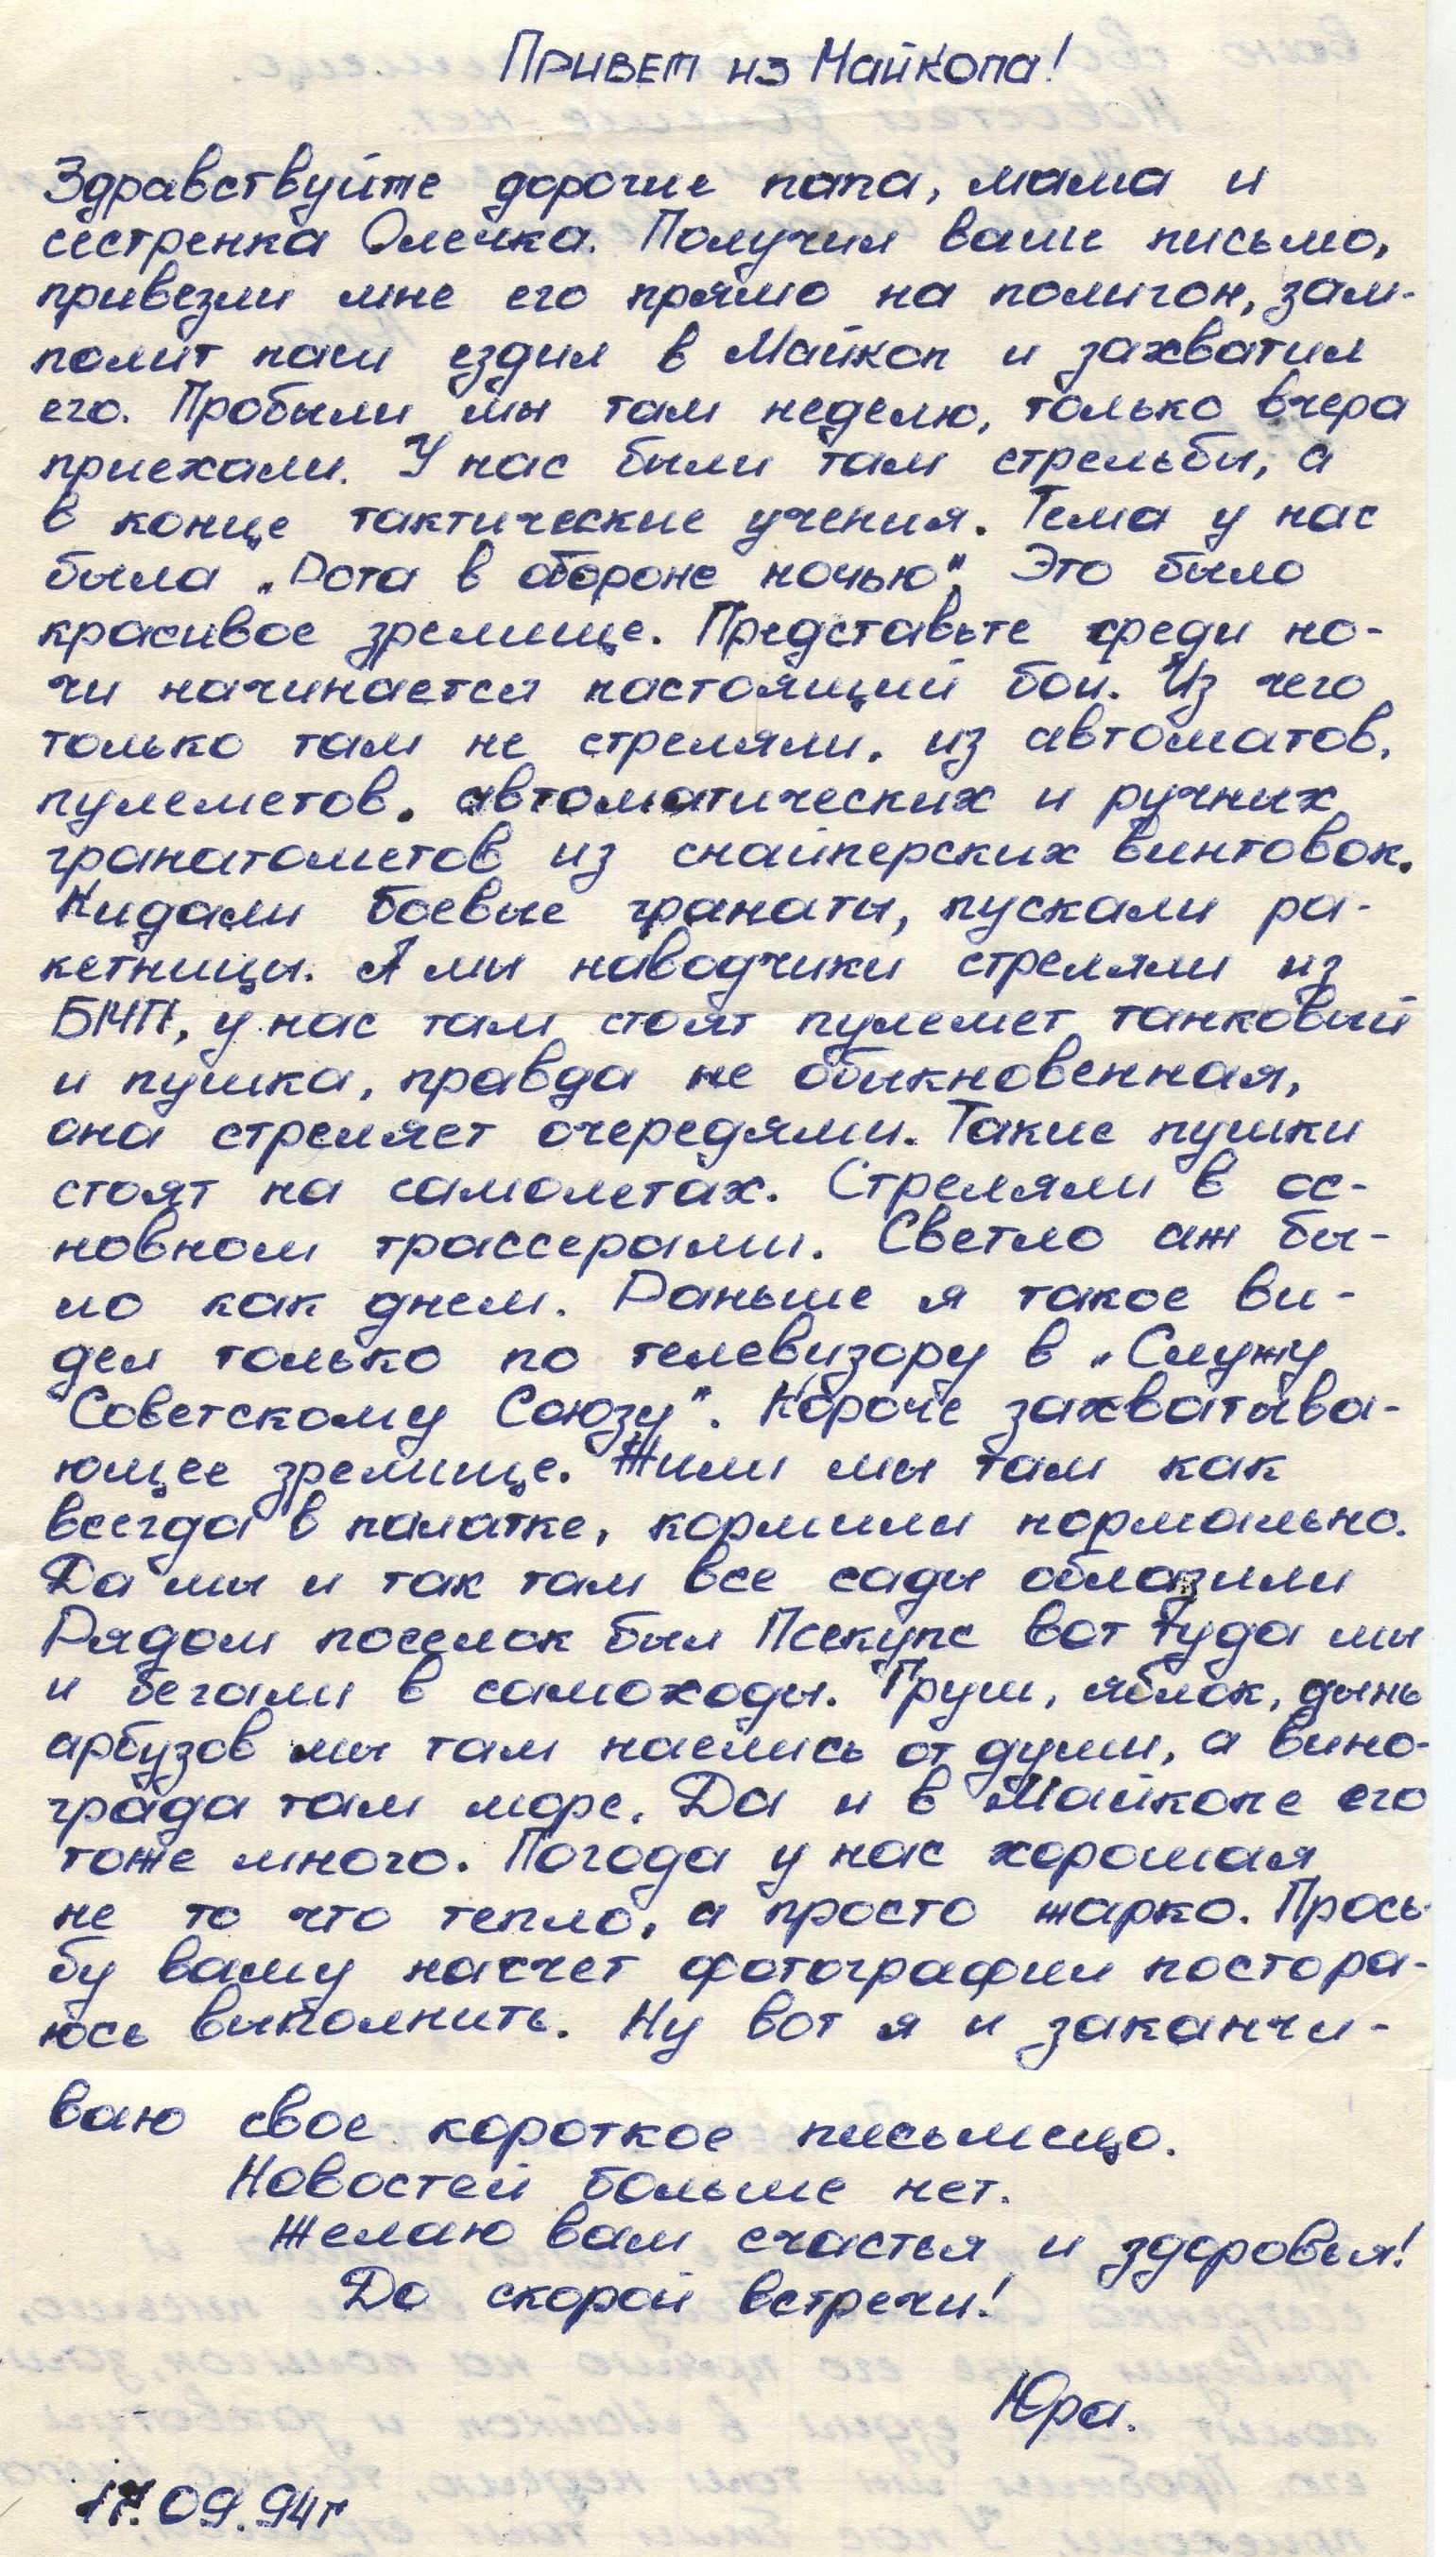 Привет из Майкопа!
Здравствуйте дорогие папа, мама и
сестренка Олечка. Получил ваше письмо,
привезли мне его прямо на полигон, зам-
полит наш ездил в Майкоп и захватил
его. Пробыли мы там неделю, только вчера
приехали. У нас были там стрельбы, а
в конце тактические учения. Тема у нас
была „Рота в обороне ночью". Это было
красивое зрелище. Представьте среди но-
чи начинается настоящий бой. Из чего
только там не стреляли, из автоматов,
пулеметов, автоматических и ручных
гранатометов из снайперских винтовок.
Кидали боевые гранаты, пускали ра-
кетницы. А мы наводчики стреляли из
БМП, у нас там стоят пулемет танковый
и пушка, правда не обыкновенная,
она стреляет очередями. Такие пушки
стоят на самолетах. Стреляли в ос-
новном трассерами. Светло аж бы-
ло как днем. Раньше я такое ви-
дел только по телевизору в „Служу
Советскому Союзу". Короче захватыва-
ющее зрелище. Жили мы там как
всегда в палатке, кормили нормально.
Да мы и так там все сады облазили
Рядом поселок был Псекупс вот туда мы
и бегали в самоходы. Груш, яблок, дынь
арбузов мы там наелись от души, а вино-
града там море. Да и в Майкопе его
тоже много. Погода у нас хорошая
не то что тепло, а просто жарко. Прось-
бу вашу насчет фотографии постора-
юсь выполнить. Ну вот я и заканчи-
ваю свое короткое письмецо.
Новостей больше нет.
Желаю вам счастья и здоровья!
До скорой встречи!
Юра.
17.09.94г